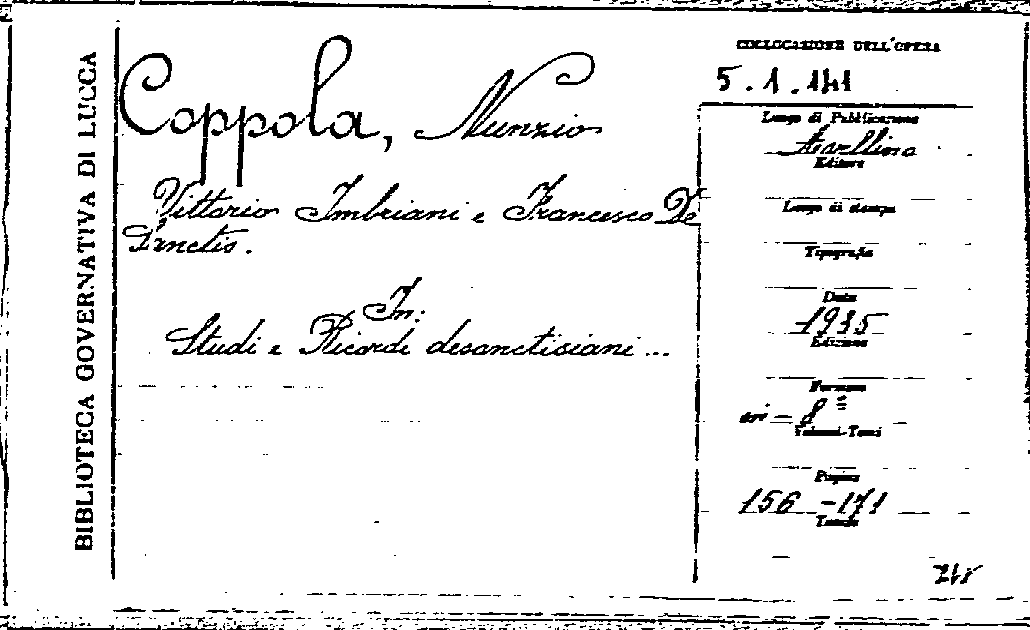 BIBLIOTECA GOVERNATIVA DI LUCCA
Coppola, Nunzio
Vittorio Imbriani e Francesco De
Sanctis.
In:
Studi e Ricordi desanctisiani...
COLLOCAZIONE DELL'OPERA
5.1.141
Luogo di Pubblicazione
Avellino
Editore
Luogo di stampa
Tipografia
Data
1935
Edizione
Formato
in-8º
Volumi-Tomi
Pagine
156-171
Tavole